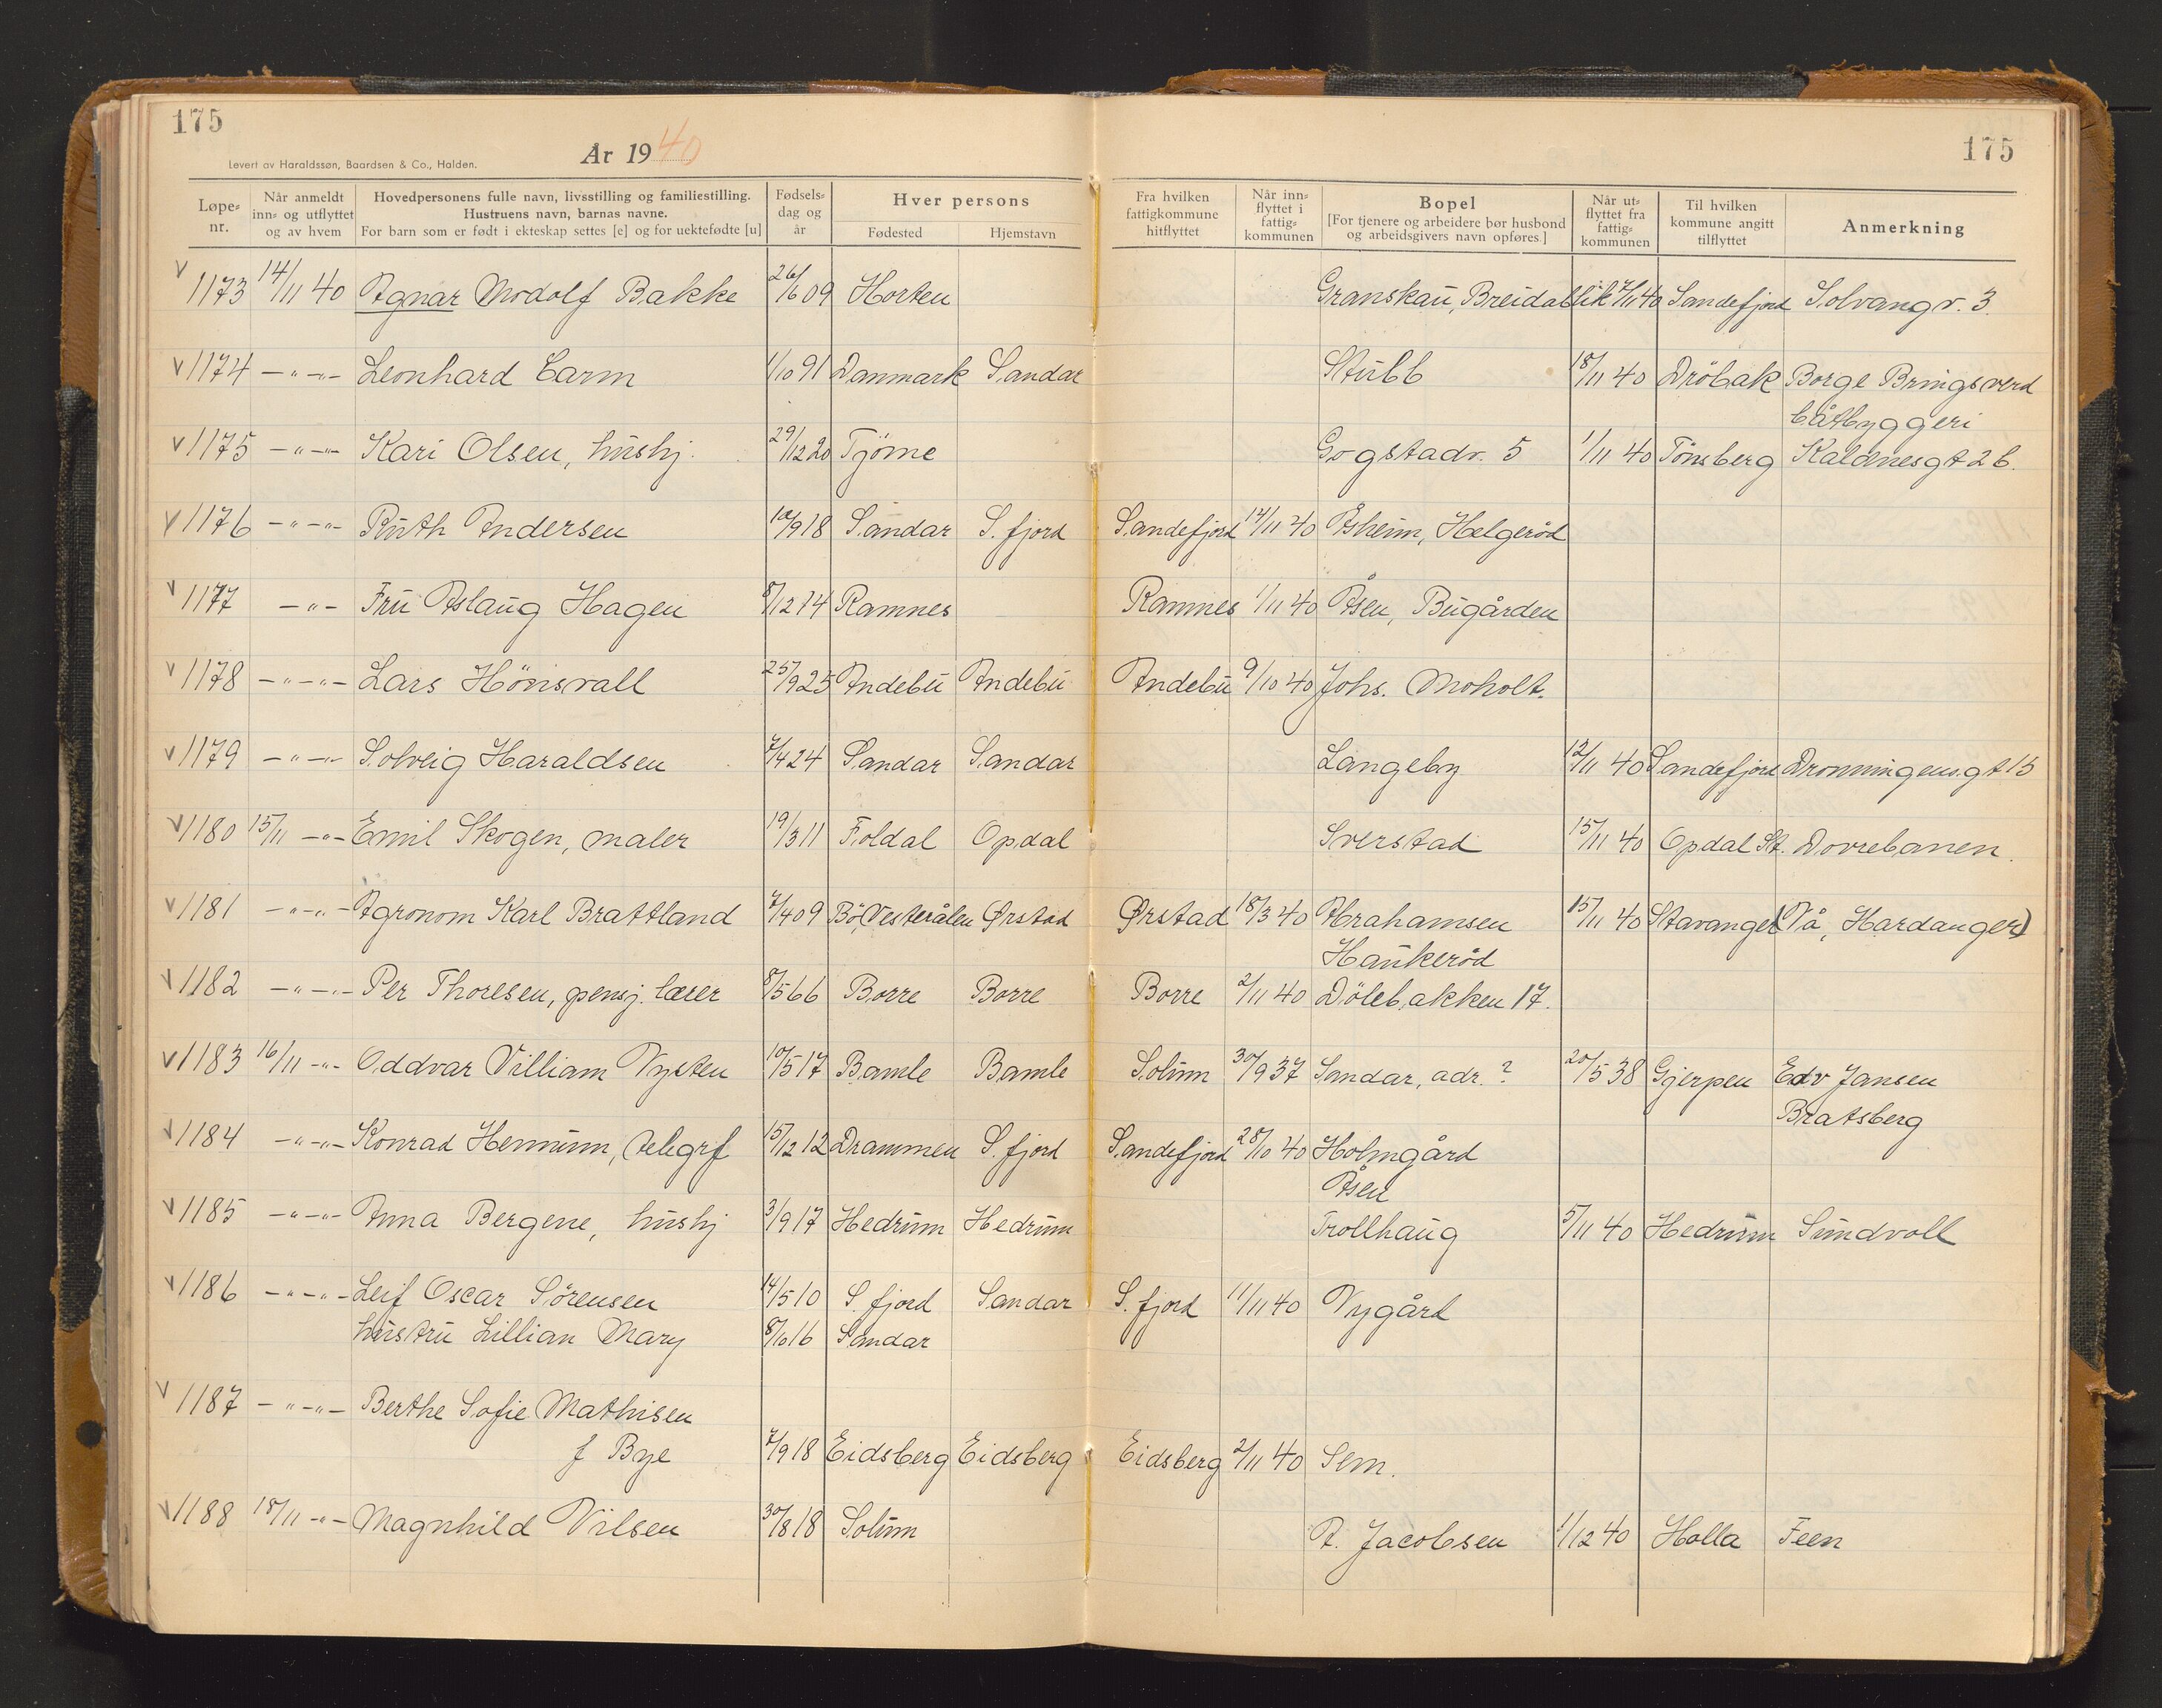 175
175
Levert av Haraldssøn, Baardsen & Co., Halden.
År 1940
Løpe-nr. Når anmeldt inn- og utflyttet og av hvem Hovedpersonens fulle navn, livsstilling og familiestilling. Hustruens navn, barnas navne. For barn som er født i ekteskap settes [e] og for uektefødte [u] Fødsels-dag og år Hver persons Fødested Hjemstavn Fra hvilken fattigkommune hitflyttet Når inn-flyttet i fattig-kommunen Bopel [For tjenere og arbeidere bør husbond og arbeidsgivers navn opføres.] Når ut-flyttet fra fattig-kommunen Til hvilken kommune angitt tilflyttet Anmerkning
v 1173 14/11 40 Agnar Modolf Bakke 26/6 09 Horten Granskau, Breidablik /11 40 Sandefjord Solvangv. 3.
v 1174 -"-"- Leonhard Carm 1/10 91 Danmark Sandar Stubb 18/11 40 Dröbak Borge Bringsverd
båtbyggeri
v 1175 -"-"- Kari Olsen, hushj. 29/12 20 Tjöme Gogstadv. 5 1/11 40 Tönsberg Kaldnesgt 2b.
v 1176 -"-"- Ruth Andersen 10/9 18 Sandar S. fjord Sandefjord 14/11 40 Åsheim, Helgeröd
v 1177 -"- Fru Aslaug Hagen 8/12 14 Ramnes Ramnes 1/11 40 Åsen, Bugården
v 1178 -"-"- Lars Hönsvall 25/9 25 Andebu Andebu Andebu 9/10 40 Johs. Moholt.
v 1179 -"-"- Solveig Haraldsen 7/4 24 Sandar Sandar Langeby 12/11 40 Sandefjord Dronningens.gt 15
v 1180 15/11 -"- Emil Skogen, maler 19/3 11 Foldal Opdal Sverstad 15/11 40 Opdal St. Dovrebanen.
v 1181 -"-"- Agronom Karl Brattland 7/4 09 Bö, Vesterålen Ørstad Ørstad 18/3 40 Abrahamsen 15/11 40 Stavanger (Nå, Hardanger)
Haukeröd
v 1182 -"-"- Per Thoresen, pensj. lærer 8/5 66 Borre Borre Borre 2/11 40 Dölebakken 17.
v 1183 16/11 -"- Oddvar Villiam Nysten 10/5 17 Bamle Bamle Solum 30/9 37 Sandar, adr. ? 20/5 38 Gjerpen Edv Jansen
Bratsberg
v 1184 -"-"- Konrad Hermann, telegrf 15/12 12 Drammen S. fjord Sandefjord 28/10 40 Holmgård
Åsen
v 1185 -"-"- Anna Bergene, hushj 3/9 17 Hedrum Hedrum Trollhaug 5/11 40 Hedrum Sundvoll
v 1186 -"-"- Leif Oscar Sörensen 14/5 10 S. fjord Sandar S. fjord 11/11 40 Nygård
hustru Lillian Mary 8/10 16 Sandar
v 1187 -"-"- Berthe Sofie Mathisen
f Bye 7/9 18 Eidsberg Eidsberg Eidsberg 2/11 40 Sem.
v 1188 18/11 -"- Magnhild Nilsen 30/8 18 Solum A. Jacobsen 1/12 40 Holla Feen